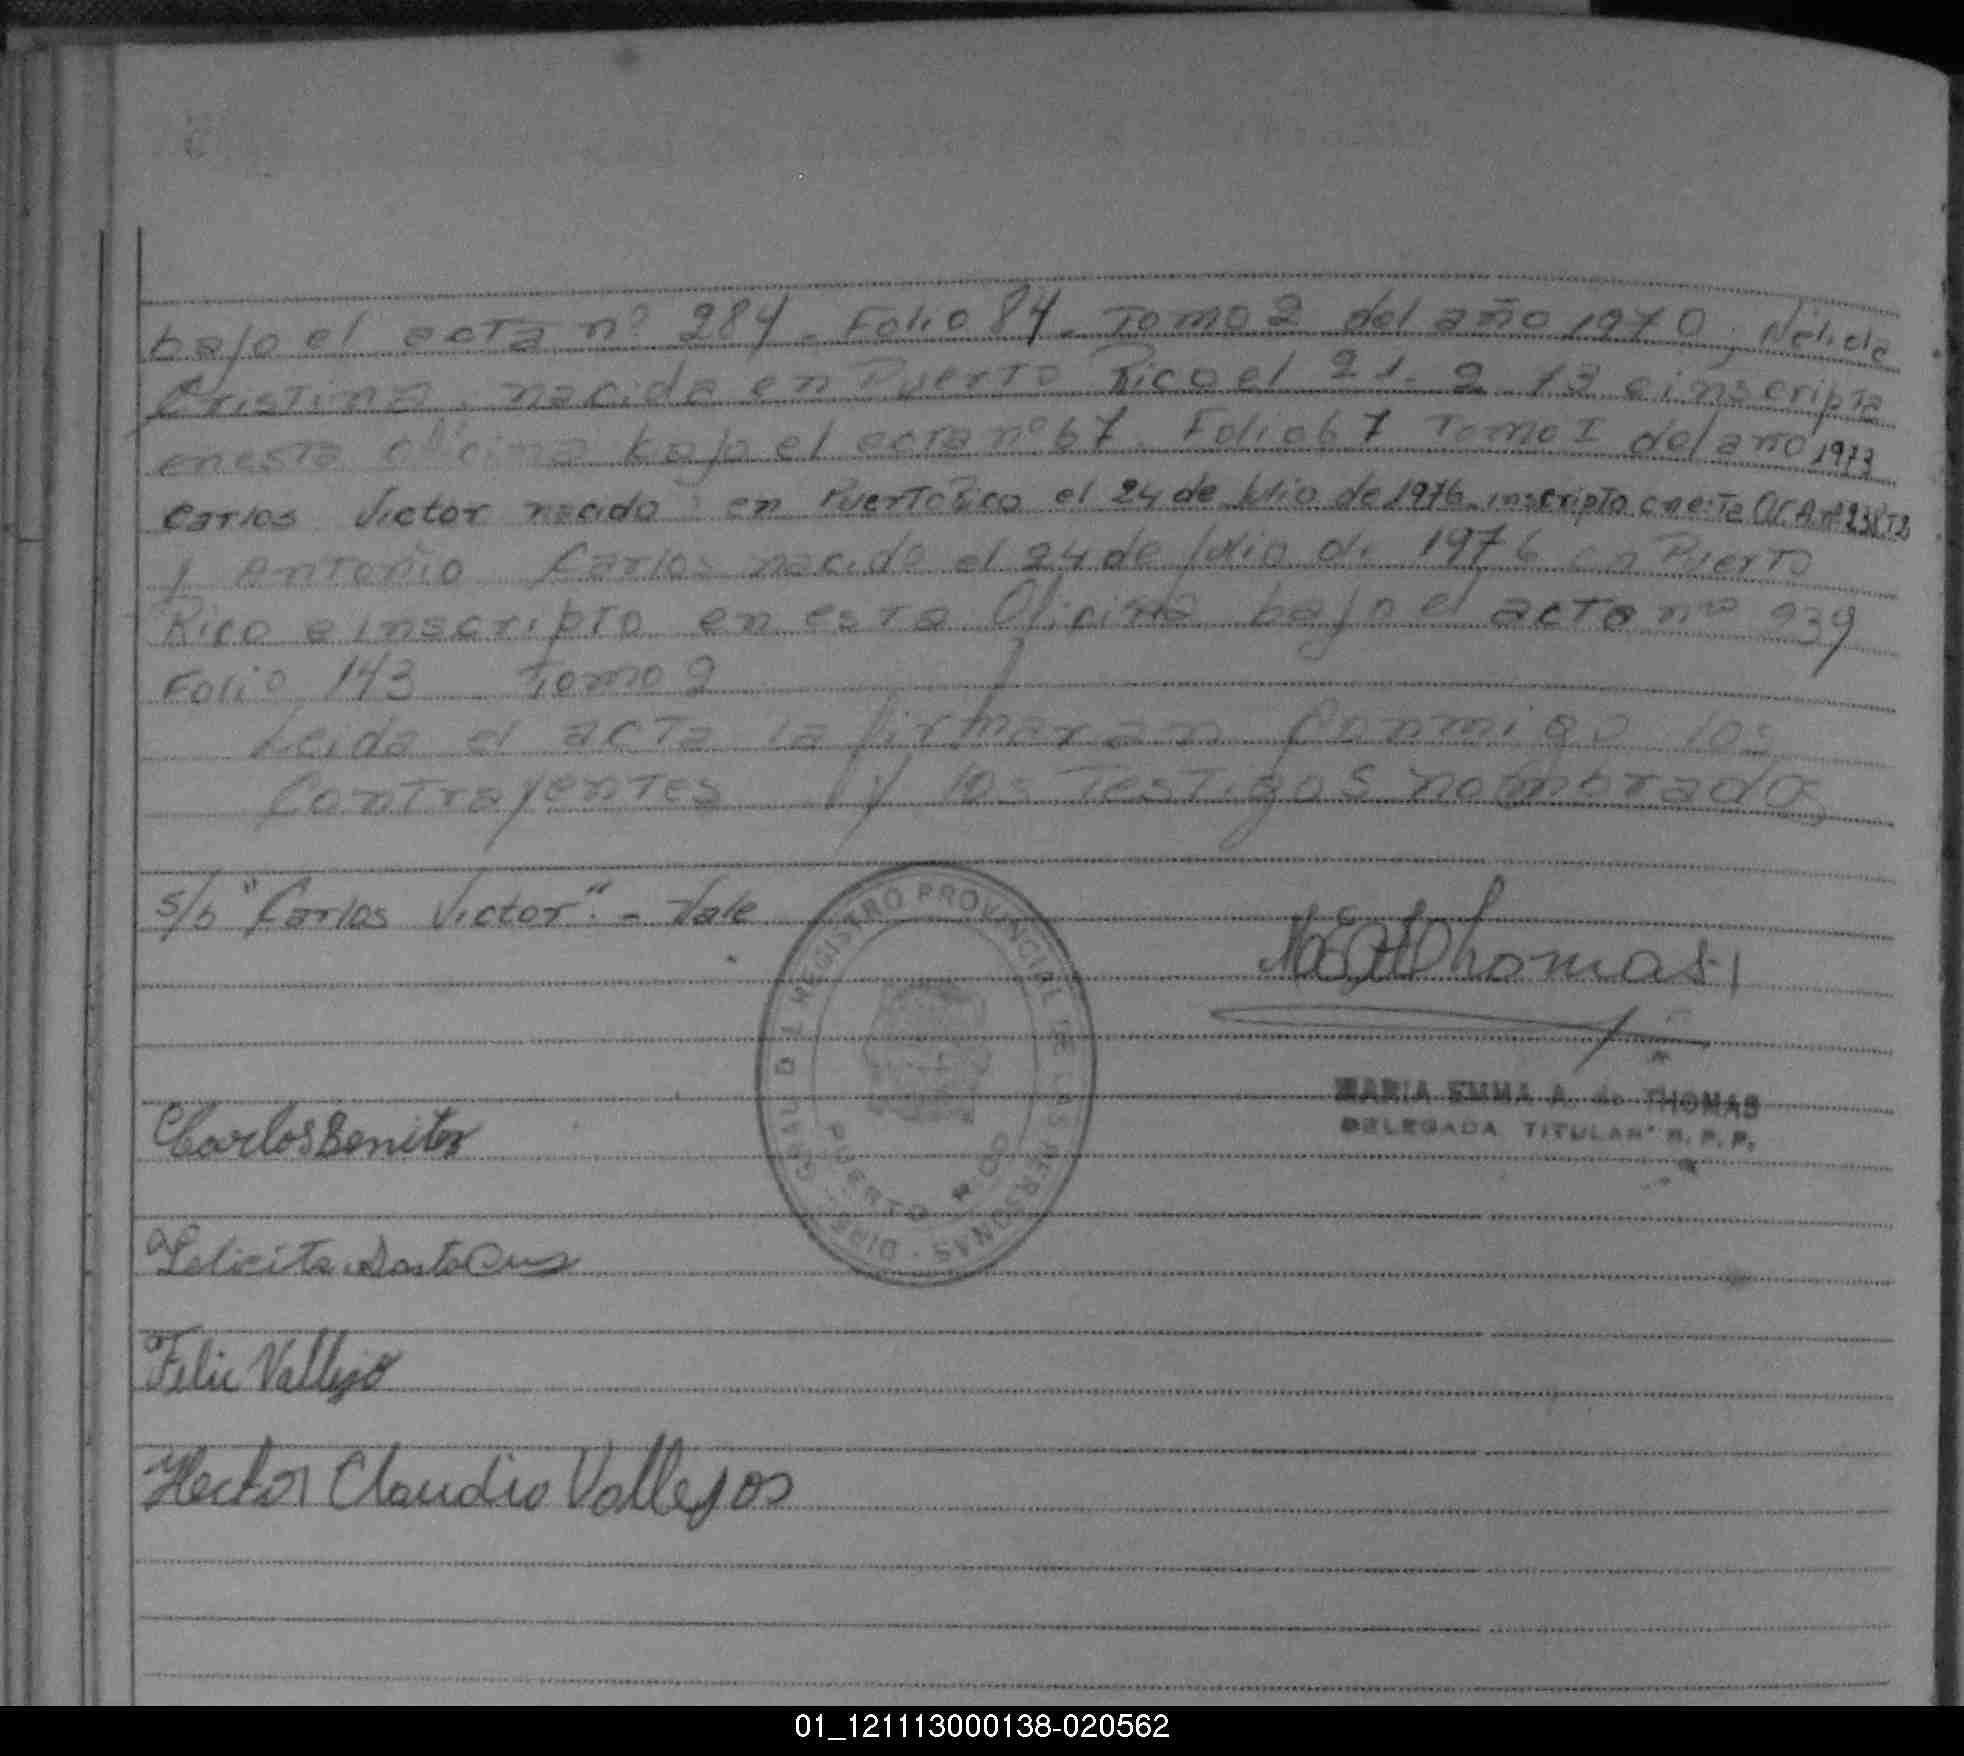 bajo el acta nº 284. Folio 84. Tomo 2 del año 1970, Nélida
Cristina, nacida en Puerto Rico el 21-2-73 e inscripta
en esta oficina bajo el acta nº 67. Folio 67 Tomo I del año 1973
Carlos Victor nacido en Puerto Rico el 24 de Julio de 1976 inscripto en esta Of. A. nº 238 T2
y Antonio Carlos nacido el 24 de Julio de 1976 en Puerto
Rico e inscripto en esta Oficina bajo el acta nº 239
Folio 143 Tomo 2
Leida el acta la firmaran Conmigo los
Contrayentes y los Testigos nombrados
s/b "Carlos Victor". - Vale
Thomas
DIREC. GRAL. DEL REGISTRO PROVINCIAL DE LAS PERSONAS
PUERTO RICO
MARIA EMMA A. de THOMAS
DELEGADA TITULAR R. P. P.
Carlos Benitez
Felicita Dosta Cruz
Felix Vallejo
Hector Claudio Vallejos
01_121113000138-020562